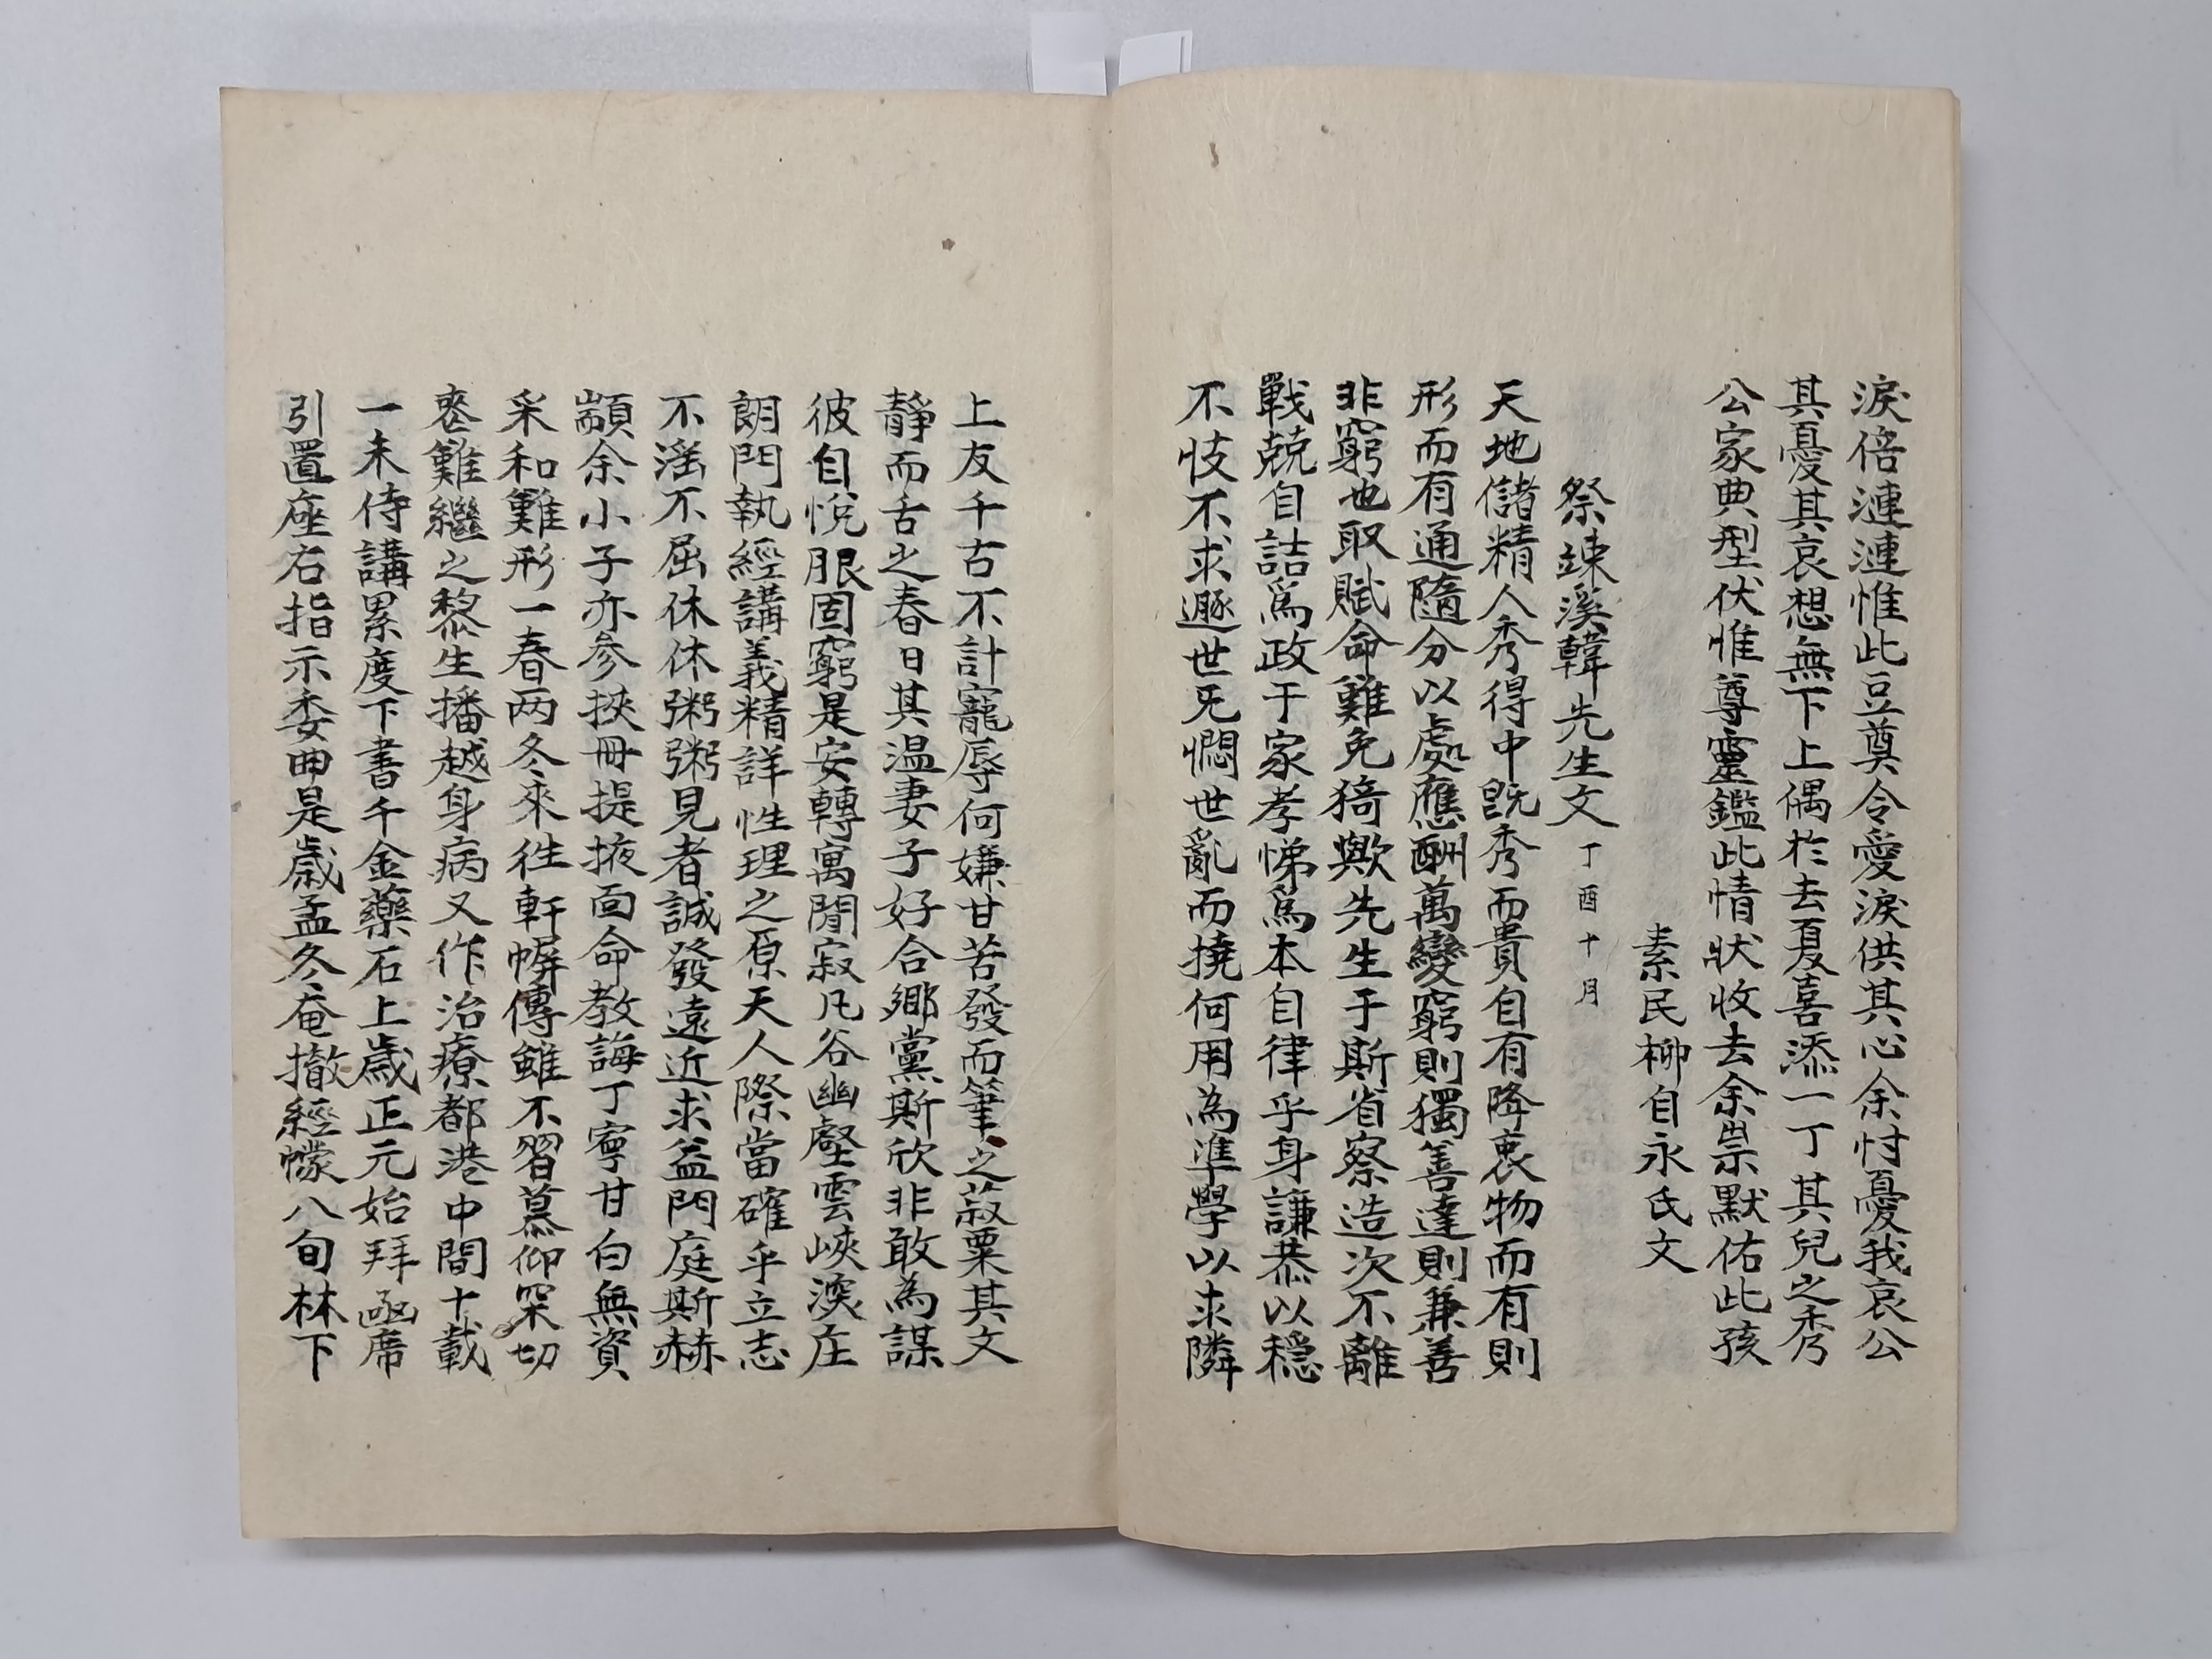 淚倍漣漣惟此豆奠令愛淚供其心余忖憂我哀公
其憂其哀想無下上偶於去夏喜添一丁其兒之秀
公家典型伏惟尊靈鑑此情狀收去余祟默佑此孩
素民柳自永氏文
祭竦溪韓先生文 丁酉十月
天地儲精人秀得中旣秀而貴自有降衷物而有則
形而有通隨分以處應酬萬變窮則獨善達則兼善
非窮也取賦命難免猗歟先生于斯省察造次不離
戰兢自詰爲政于家孝悌爲本自律乎身謙恭以穩
不忮不求遯世旡憫世亂而撓何用為準學以求隣
上友千古不計寵辱何嫌甘苦發而筆之菽粟其文
靜而舌之春日其温妻子好合鄉黨斯欣非敢為謀
彼自悅服固窮是安轉寓閒寂凡谷幽壑雲峽溪庄
朗門執經講義精詳性理之原天人際當確乎立志
不滛不屈休休粥粥見者誠發遠近求益門庭斯赫
顓余小子亦參挾冊提掖面命教誨丁寧甘白無資
采和難形一春两冬來徃軒幈傳雖不習慕仰罙切
喪難繼之黎生播越身病又作治療都港中間十載
一未侍講累度下書千金藥石上歲正元始拜凾席
引置座右指示委曲是歲孟冬奄撤經幪八旬林下